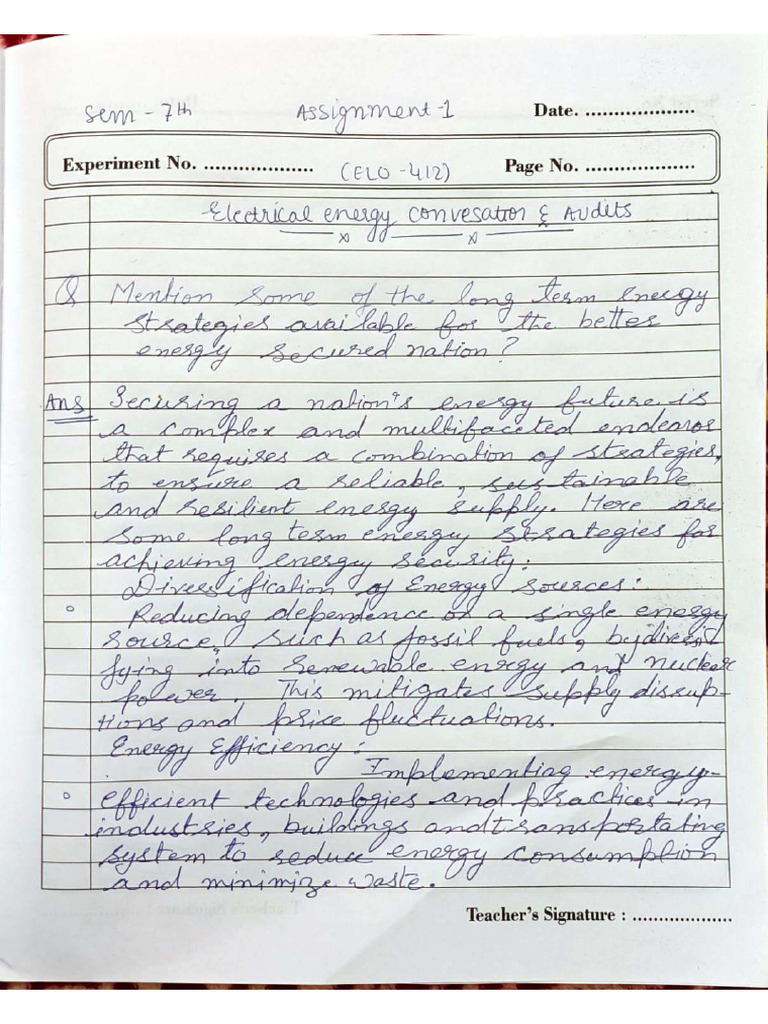 Sem - 7th Assignment-1 Date. ...................
Experiment No. ................... (ELO -412) Page No. ...................
Electrical energy Convesation & Audits
Q Mention some of the long term energy
strategies available for the better
energy secured nation?
Ans Securing a nation's energy future is
a complex and multifaceted endeavor
that requires a combination of strategies,
to ensure a reliable, sustainable
and resilient energy supply. Here are
some long term energy strategies for
achieving energy security:
Diversification of Energy sources:
Reducing dependence on a single energy
source, such as fossil fuels, by diversi
fying into renewable energy and nuclear
power. This mitigates supply disrup-
tions and price fluctuations.
Energy Efficiency:
Implementing energy-
efficient technologies and practices in
industries, buildings and transportating
system to reduce energy consumption
and minimize waste.
Teacher's Signature : ...................